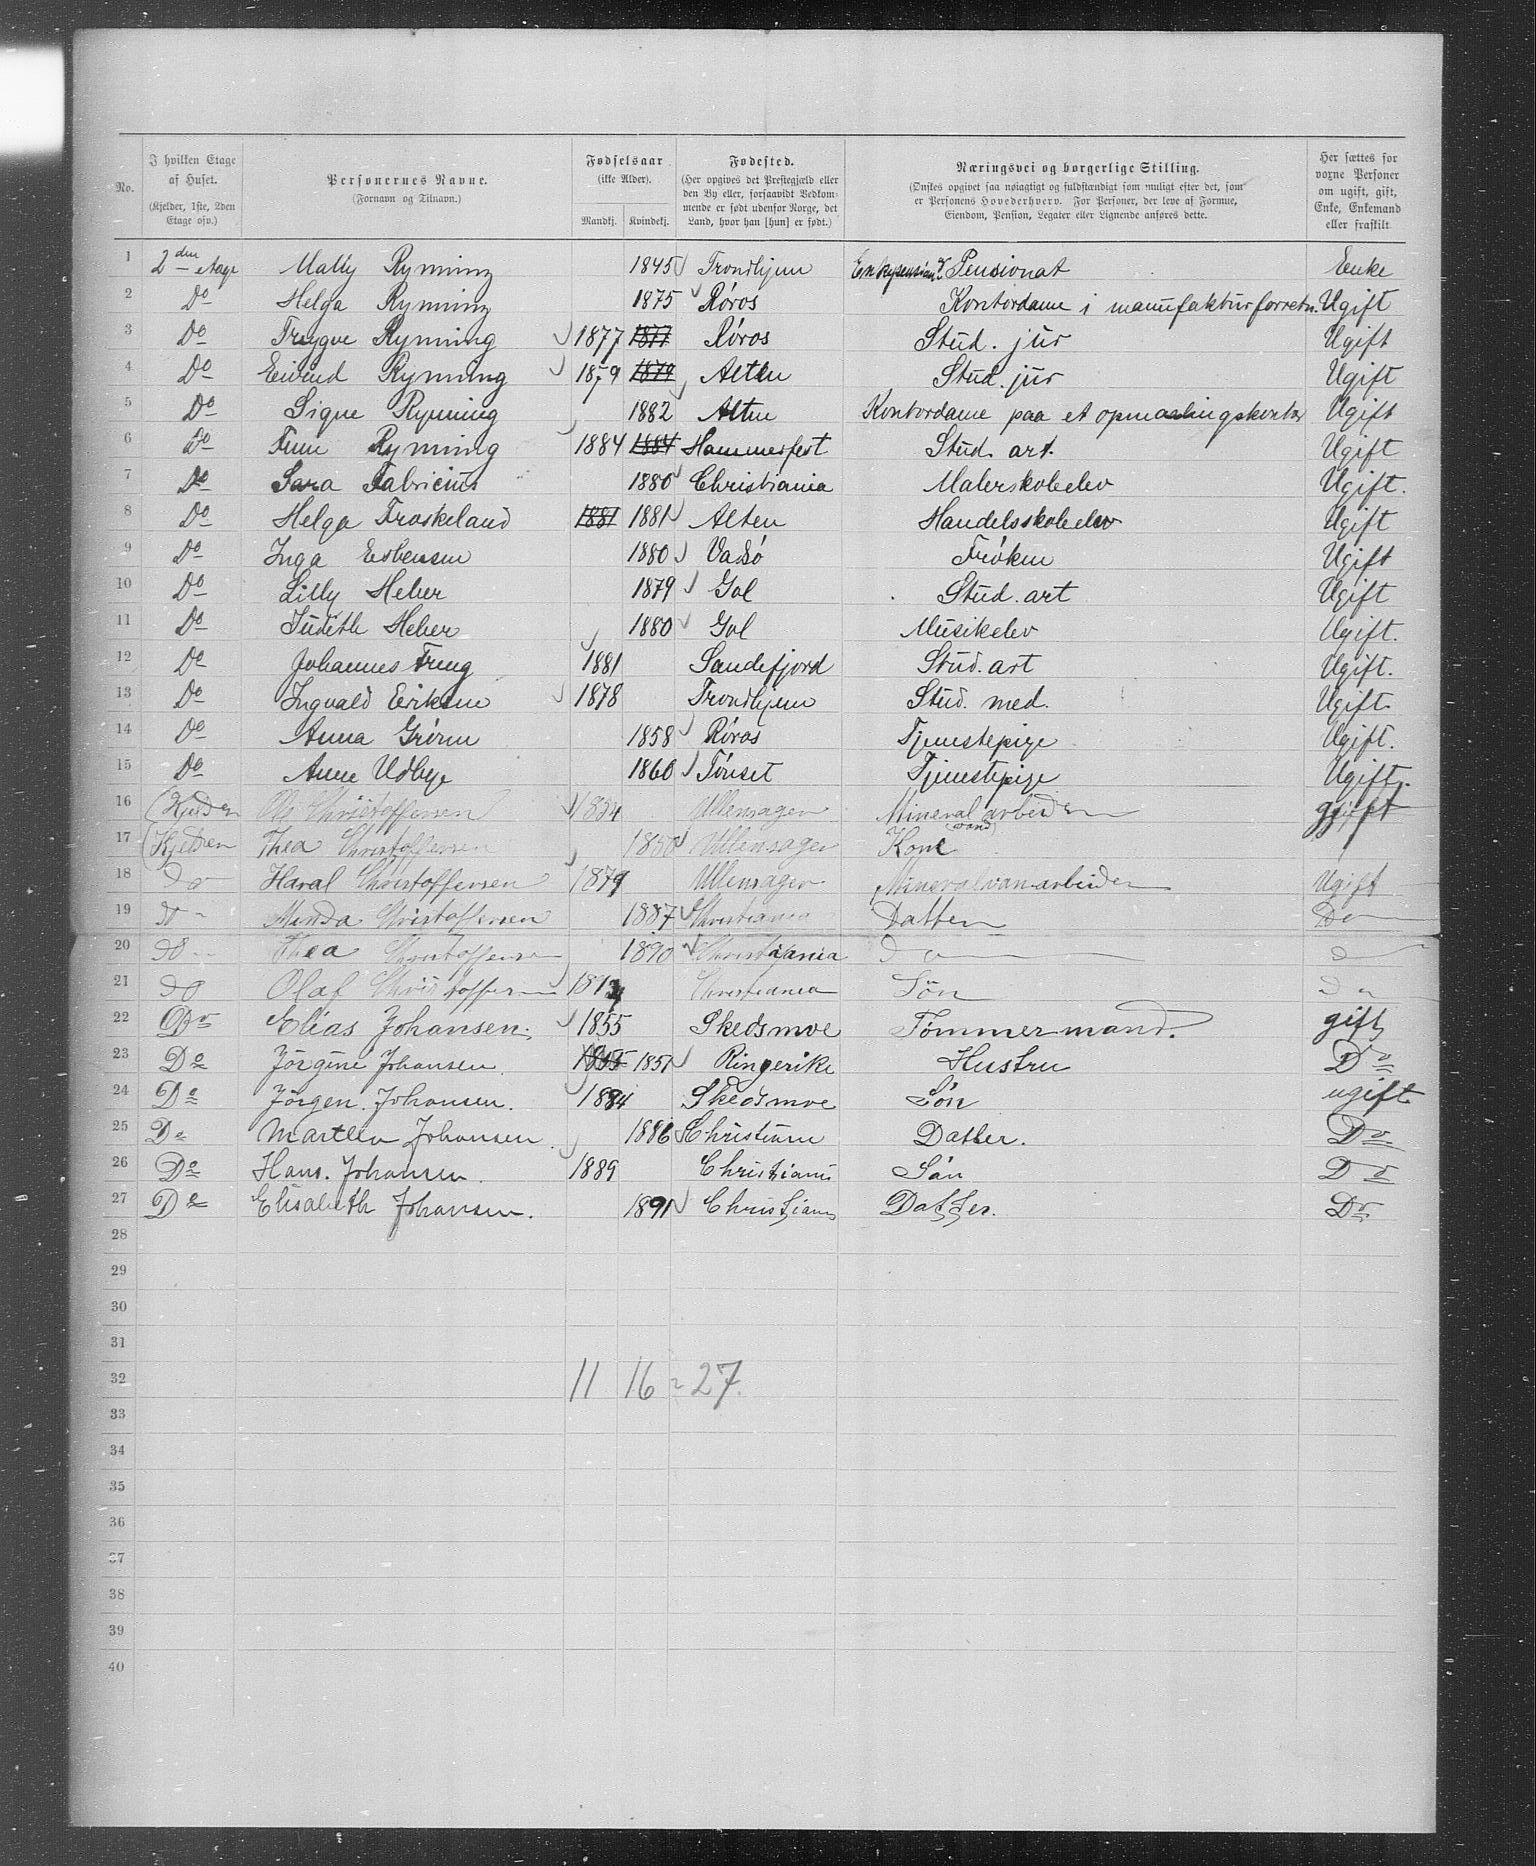 No.
I hvilken Etage af Huset.
(Kjelder, 1ste, 2den Etage osv.)
Personernes Navne.
(Fornavn og Tilnavn.)
Fødselsaar
(ikke Alder).
Mandkj. Kvindekj.
Fødested.
(Her opgives det Prestegjæld eller den By eller, forsaavidt Vedkommende er født udenfor Norge, det Land, hvor han [hun] er født.)
Næringsvei og borgerlige Stilling.
(Ønskes opgivet saa nøiagtigt og fuldstændigt som muligt efter det, som er Personens Hovederhverv. For Personer, der leve af Formue, Eiendom, Pension, Legater eller Lignende anføres dette.
Her sættes for voxne Personer om ugift, gift, Enke, Enkemand eller fraskilt
1 2den etage Mally Rynning 1845 Trondhjem Pensionat Enke
2 Do Helga Rynning 1875 Røros Kontordame i manufakturforretn. Ugift
3 Do Trygve Rynning 1877 1877 Røros Stud. jur Ugift
4 Do Eivind Rynning 1879 1879 Alten Stud. jur Ugift
5 Do Signe Rynning 1882 Alten Kontordame paa et opmaalingskontor Ugift
6 Do Finn Rynning 1884 1884 Hammerfest Stud. art. Ugift
7 Do Sara Fabricius 1880 Christiania Malerskoleelev Ugift.
8 Do Helga Froskeland 1881 1881 Alten Handelsskoleelev Ugift
9 Do Inga Esbensen 1880 Vadsø Frøken Ugift
10 Do Lilly Heber 1879 Gol Stud. art Ugift
11 Do Judith Heber 1880 Gol Musikelev Ugift.
12 Do Johannes 1881 Sandefjord Stud. art Ugift.
13 Do Ingvald Eriksen 1878 Trondhjem Stud. med. Ugift.
14 Do Anna Grønn 1858 Røros Tjenestepige Ugift.
15 Do Anne Udbye 1860 Tønset Tjenestepige Ugift.
16 Kjelder Ole Christoffersen 1854 Ullensager Mineral(vand)arbeider gift
17 Kjelderen Thea Christoffersen 1850 Ullensager Kone
18 do Haral Christoffersen 1879 Ullensager Mineralvanarbeider Ugift
19 do Minda Christoffersen 1887 Christiania Datter Do
20 do Thea Christoffersen 1890 Christiania do d
21 do Olaf Christoffersen Christiania Søn do
22 Do Elias Johansen. 1855 Skedsmoe Tømmermand. gift
23 Do Jørgine Johansen. 1855 1851 Ringerike Hustru Do
24 Do Jørgen. Johansen. 1884 Skedsmoe Søn ugift.
25 Do Martha Johansen. 1886 Christiania Datter. Do
26 Do Hans. Johansen. 1889 Christiania Søn Do
27 Do Elisabeth Johansen. 1891 Christiania Datter. Do
28
29
30
31
32 11 16 = 27.
33
34
35
36
37
38
39
40